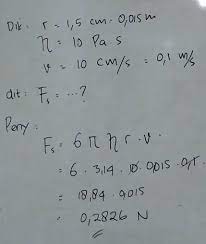 Dik: r = 1,5 cm = 0,015 m
η = 10 Pa s
v = 10 cm/s = 0,1 m/s
dit: Fs = ...?
Peny:
Fs = 6 π η r . v .
= 6 . 3,14 . 10 . 0,015 . 0,1
= 18,84 . 0,015
= 0,2826 N